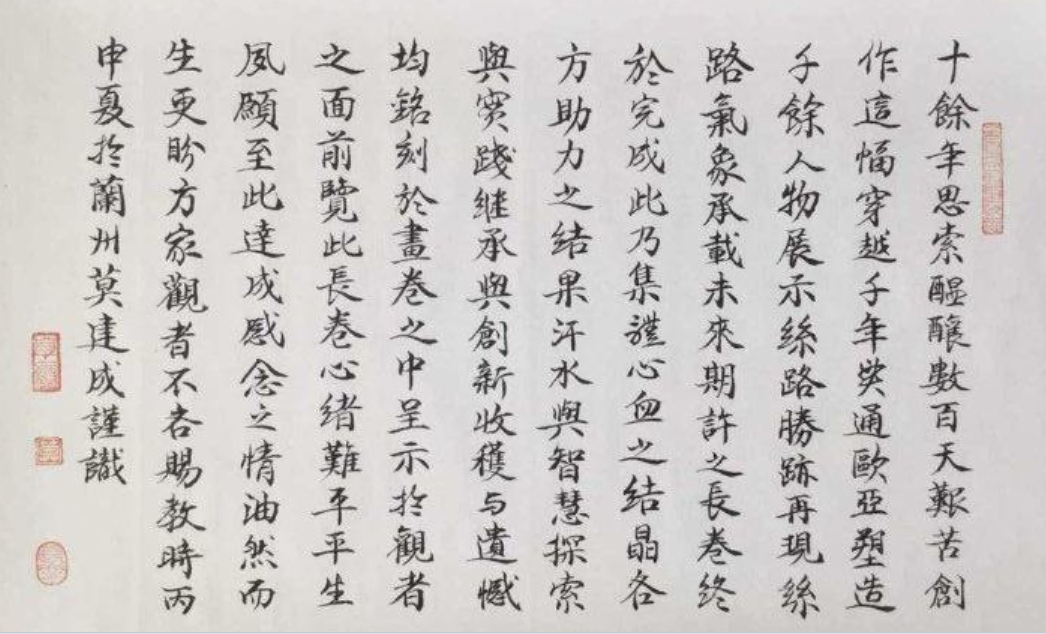 十餘年思索醖釀數百天艱苦創
作這幅穿越千年貫通歐亞塑造
千餘人物展示絲路勝跡再現絲
路氣象承載未來期許之長卷終
於完成此乃集體心血之結晶各
方助力之结果汗水與智慧探索
與實踐继承與創新收穫与遺憾
均銘刻於畫卷之中呈示扵觀者
之面前覽此長卷心緒難平平生
夙願至此達成感念之情油然而
生更盼方家觀者不吝賜教時丙
申夏扵蘭州莫建成謹識